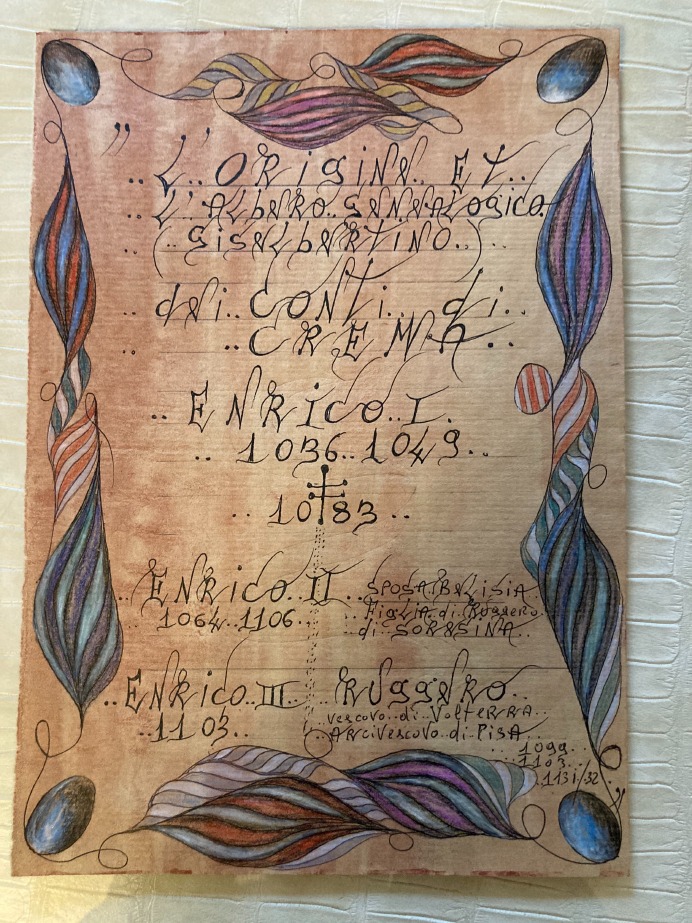 " ..L'..ORiGiNE ET..
..L'ALbERO GENEALOGico
..(..GiSELbERTINO..)..
..dEi..CONTi..di..
.. ..CREMA..
..ENRico..I.
..1036..1049..
..10‡83..
..ENRico..II..SPOSA..BELiSiA
1064..1106..FiGLiA..di Ruggero
di SORESiNA..
..ENRico..III RuggERO..
..1103.. ..vescovo..di VoLTERRA..
..ARCiVEScovo..di PiSA..
..1099..
..1103..
..1131/32.."